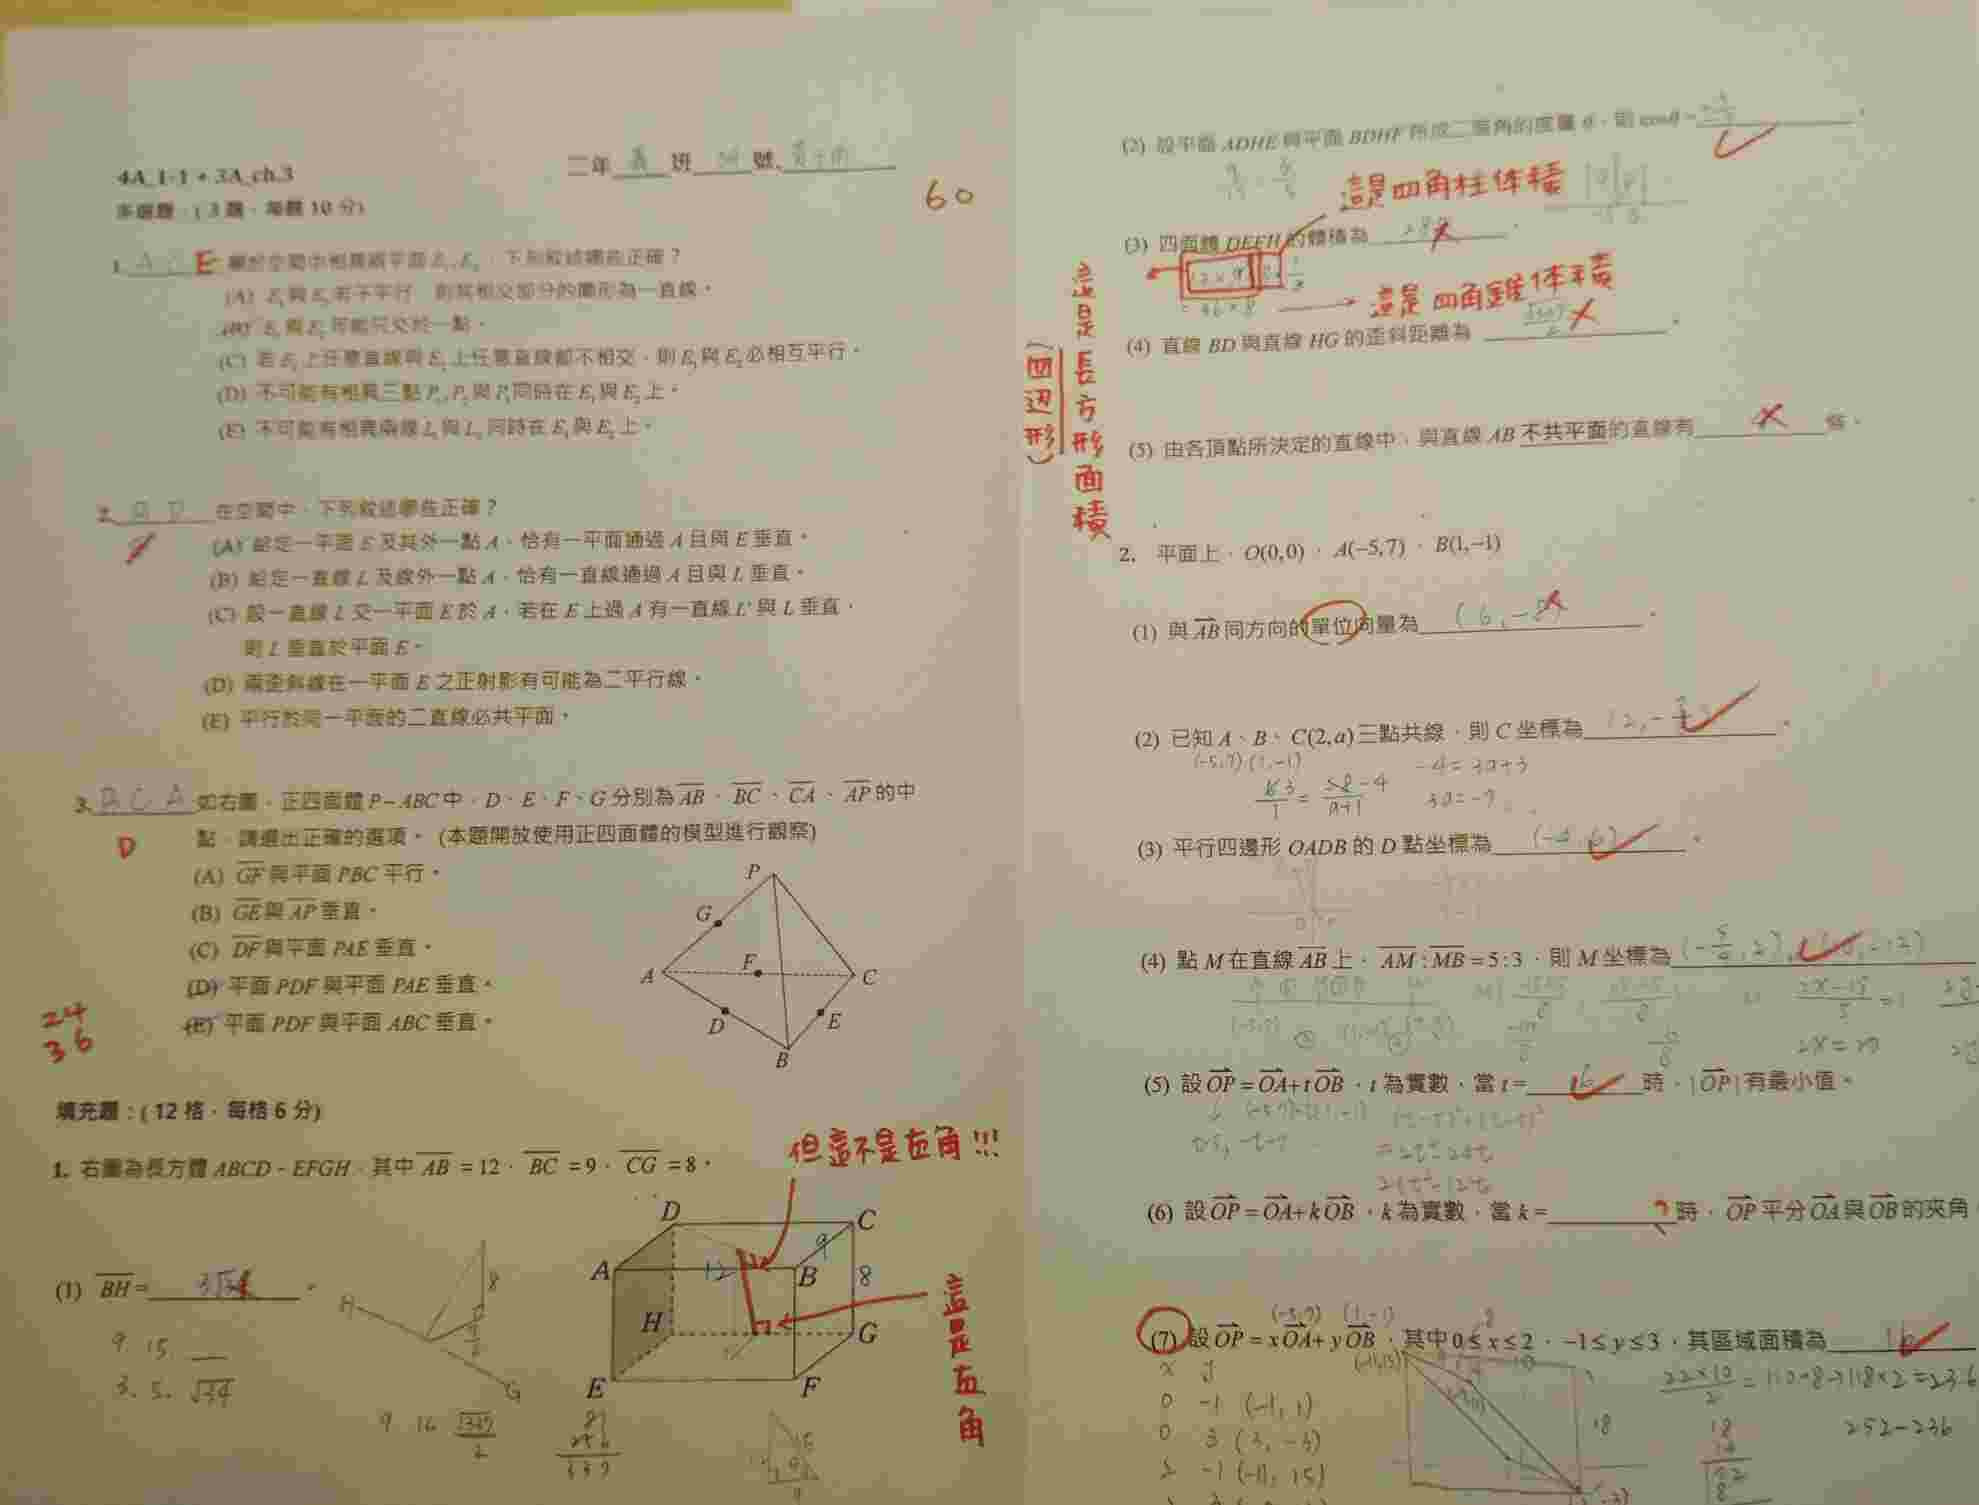 4A_1-1 + 3A_ch.3
二年 班 號
60
多選題：( 3 題，每題 10 分)
1. A C E 關於空間中相異兩平面 E₁、E₂，下列敘述哪些正確？
(A) E₁與E₂若不平行，則其相交部分的圖形為一直線。
(B) E₁與E₂可能只交於一點。
(C) 若E₁上任意直線與E₂上任意直線都不相交，則E₁與E₂必相互平行。
(D) 不可能有相異三點P₁、P₂與P₃同時在E₁與E₂上。
(E) 不可能有相異兩線L₁與L₂同時在E₁與E₂上。
2. 在空間中，下列敘述哪些正確？
(A) 給定一平面E及其外一點A，恰有一平面通過A且與E垂直。
(B) 給定一直線L及線外一點A，恰有一直線通過A且與L垂直。
(C) 設一直線L交一平面E於A，若在E上過A有一直線L'與L垂直，
則L垂直於平面E。
(D) 兩歪斜線在一平面E之正射影有可能為二平行線。
(E) 平行於同一平面的二直線必共平面。
3. B C A 如右圖，正四面體P-ABC中，D、E、F、G分別為AB、BC、CA、AP的中
D 點，請選出正確的選項。(本題開放使用正四面體的模型進行觀察)
(A) GF與平面PBC平行。
(B) GE與AP垂直。
(C) DF與平面PAE垂直。
(D) 平面PDF與平面PAE垂直。
(E) 平面PDF與平面ABC垂直。
P
G
A F C
D E
B
24
36
填充題：( 12 格，每格 6 分)
但這不是直角!!!
1. 右圖為長方體ABCD-EFGH，其中AB=12，BC=9，CG=8。
D C
A 12 B 9 8
H G
E F
這是直角
(1) BH= 3√34。
9. 15.
3. 5. √34
8
A
G
9 16 √337/2
81
256
337
(2) 設平面ADHE與平面BDHF所成二面角的度量θ，則cosθ=
這是四角柱体積
(3) 四面體DEFH的體積為 288。
這是四角錐体積
= 36×8
這是長方形面積
(四边形)
(4) 直線BD與直線HG的歪斜距離為 √337/2。
(5) 由各頂點所決定的直線中，與直線AB不共平面的直線有 條。
2. 平面上，O(0,0)，A(-5,7)，B(1,-1)
(1) 與AB同方向的單位向量為 (6,-8)。
(2) 已知A、B、C(2,a)三點共線，則C坐標為
(-5,7) (1,-1)
-4=3a+3
3a=-7
(3) 平行四邊形OADB的D點坐標為 (-4,6)。
(4) 點M在直線AB上，AM:MB=5:3，則M坐標為
2x=20
(5) 設OP=OA+tOB，t為實數，當t= 6 時，|OP|有最小值。
(6) 設OP=OA+kOB，k為實數，當k= ? 時，OP平分OA與OB的夾角
(-5,7) (1,-1)
(7) 設OP=xOA+yOB，其中0≤x≤2，-1≤y≤3，其區域面積為 16
x y
0 -1 (-1, 1)
0 3 (3, -3)
2 -1 (-11, 15)
18
22×10/2 = 110+8→118×2=236
252-236